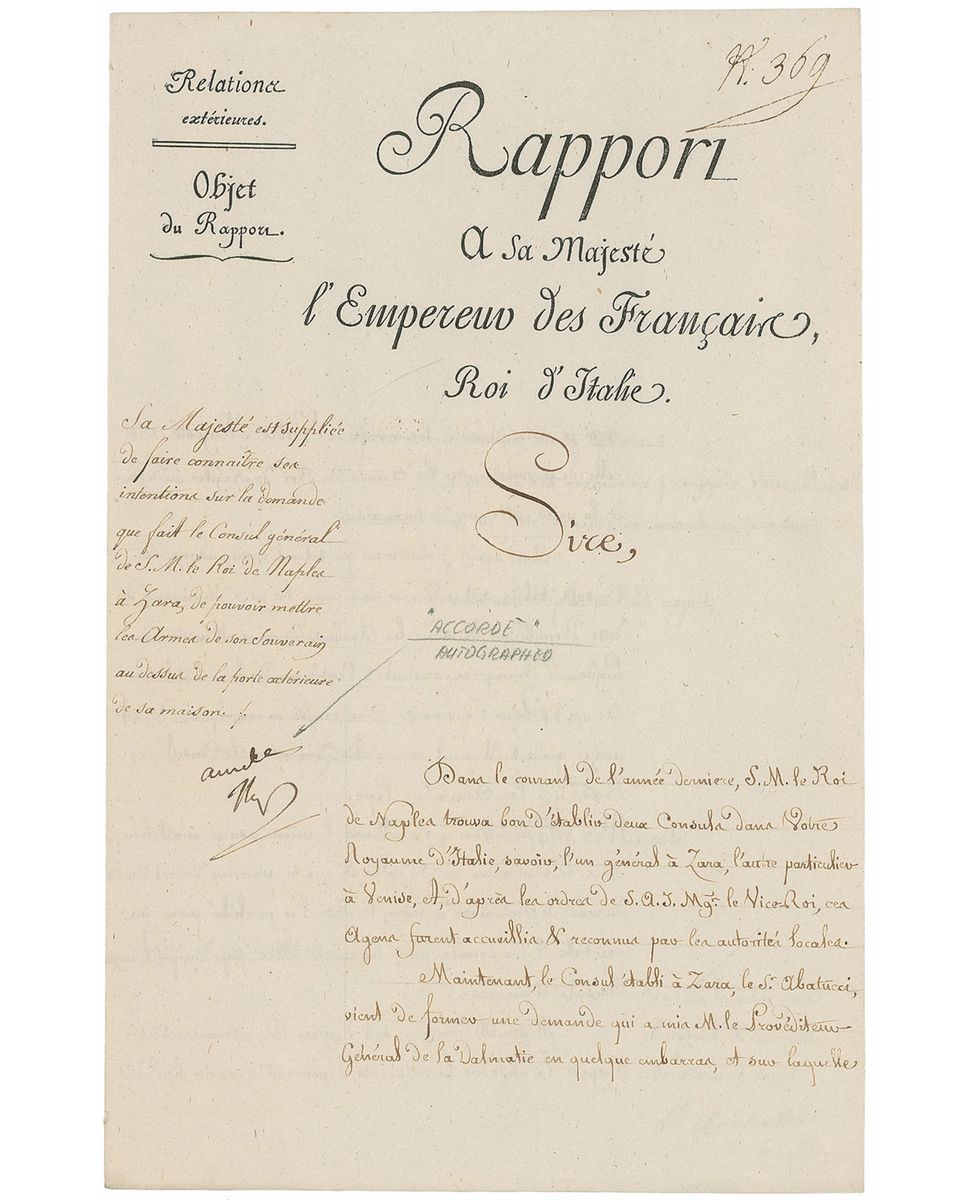 N. 369
Relations
extérieures.
Objet
du Rapport.
Rapport
A Sa Majesté
l'Empereur des Français,
Roi d'Italie.
Sa Majesté est suppliée
de faire connaître ses
intentions sur la demande
que fait le Consul général
de S. M. le Roi de Naples
à Zara, de pouvoir mettre
les Armes de son Souverain
au dessus de la porte extérieure
de sa maison. /.
Sire,
"ACCORDÉ"
AUTOGRAPHED
Dans le courant de l'année derniere, S. M. le Roi
de Naples trouva bon d'établir deux Consuls dans Votre
Royaume d'Italie, savoir, l'un général à Zara, l'autre particulier
à Venise, Et, d'après les ordres de S. A. I. Mgr. le Vice-Roi, ces
Agens furent accueillis & reconnus par les autorités locales.
Maintenant, le Consul établi à Zara, le Sr. Abatucci,
vient de former une demande qui a mis M. le Provéditeur
Général de la Dalmatie en quelque embarras, et sur laquelle